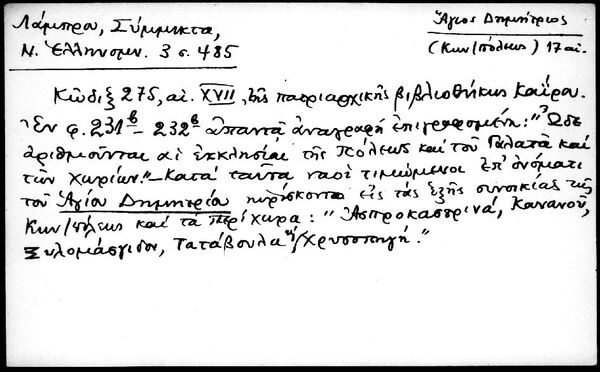 Λάμπρου, Σύμμικτα,
Ν. Ἑλληνομν. 3 σ. 485
Ἅγιος Δημήτριος
(Κων/πόλεως) 17 αἰ.
Κῶδιξ 275, αἰ. XVII, τῆς πατριαρχικῆς βιβλιοθήκης Καΐρου.
Ἐν φ. 231β – 232β ἀπαντᾷ ἀναγραφή ἐπιγραφομένη: "Ὧδε
ἀριθμοῦνται αἱ ἐκκλησίαι τῆς Πόλεως καί τοῦ Γαλατᾶ καί
τῶν χωρίων." – Κατά ταῦτα ναοί τιμώμενοι ἐπ' ὀνόματι
τοῦ Ἁγίου Δημητρίου ηὑρίσκοντο εἰς τάς ἑξῆς συνοικίας τῆς
Κων/πόλεως καί τά περίχωρα: "Ἀσπροκαστρινά, Κανανοῦ,
Ξυλομάσγιδον, Τατάβουλα ἤ Χρυσοπηγή."